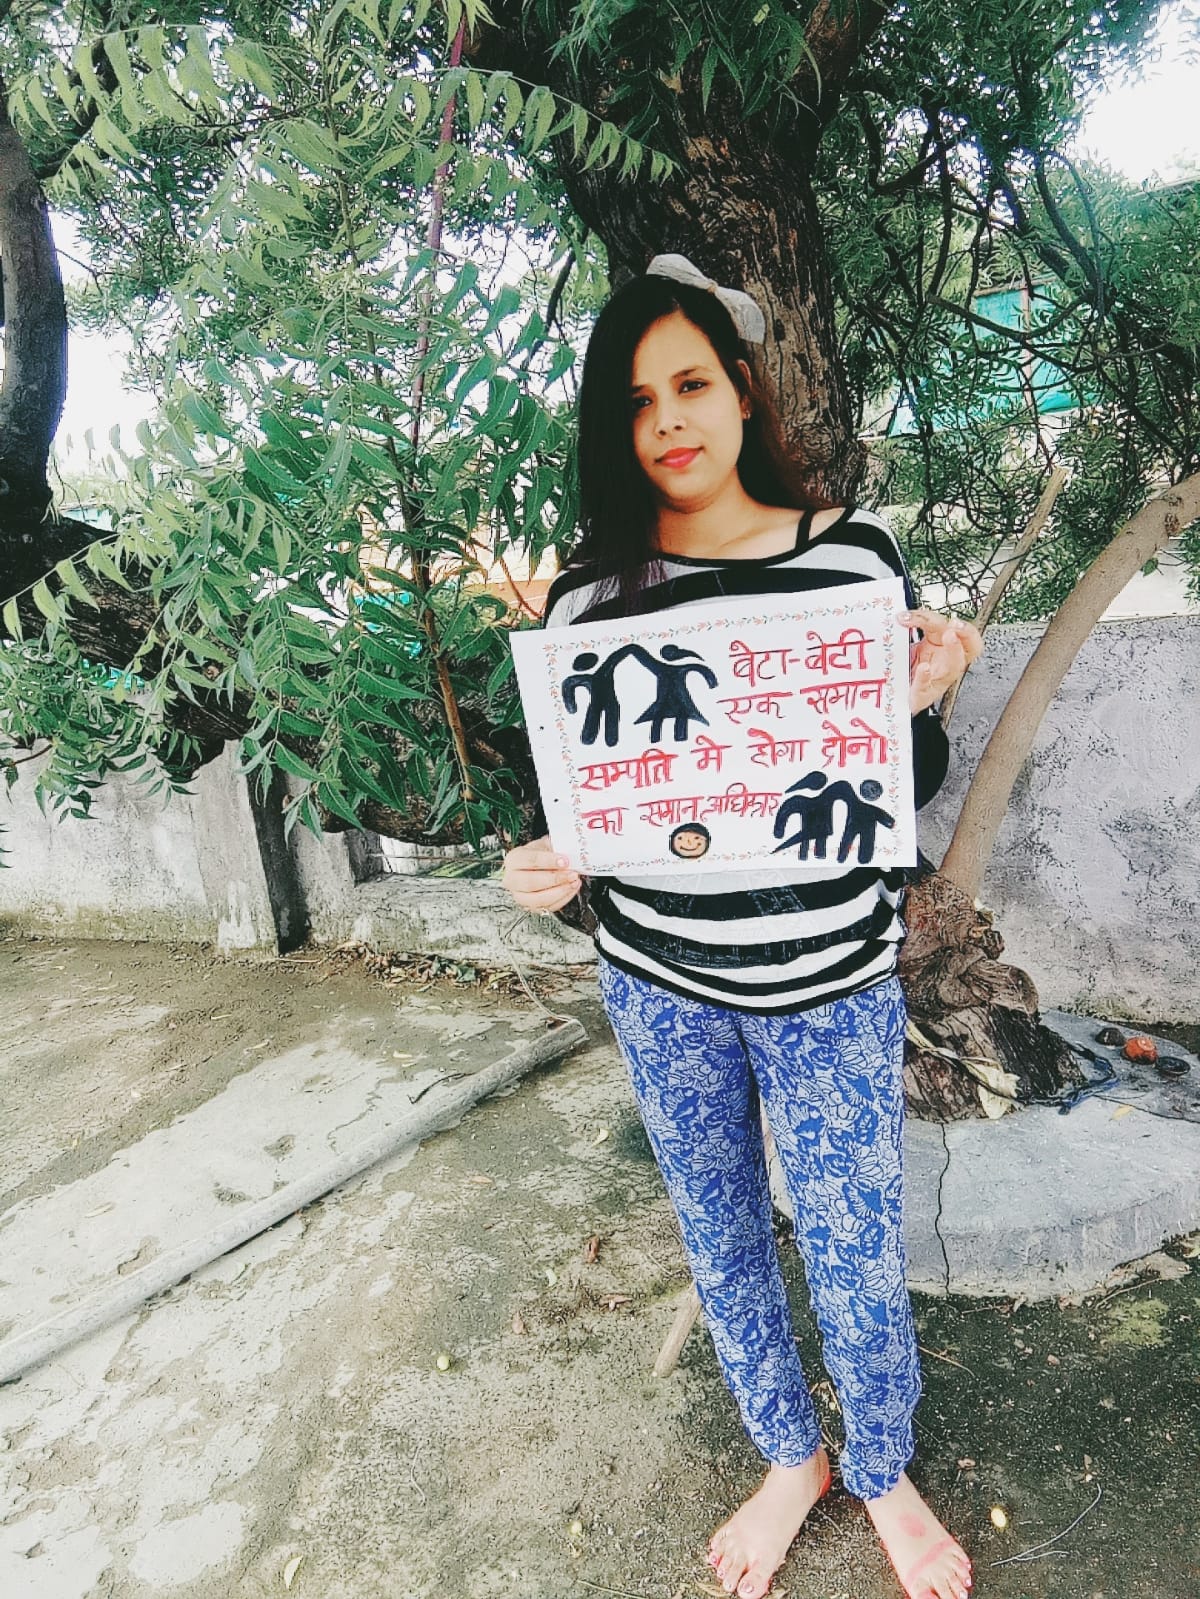 बेटा-बेटी
एक समान
सम्पति मे होगा दोनो
का समान अधिकार